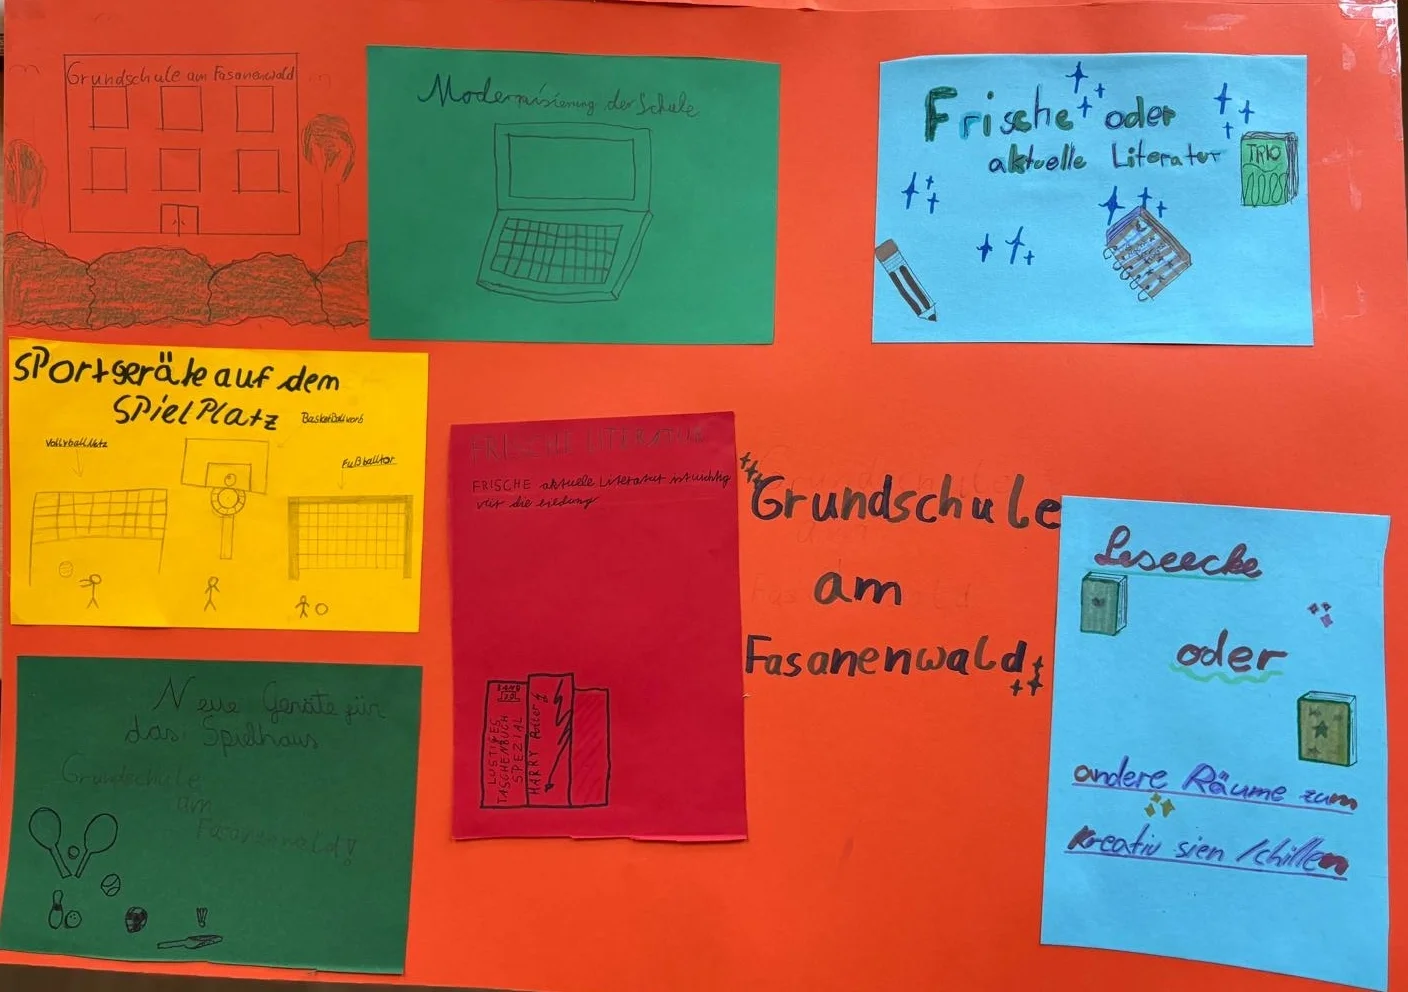 Grundschule am Fasanenwald
Modernisierung der Schule
Frische oder
aktuelle Literatur
TRIO
Sportgeräte auf dem
Spielplatz
Basketballkorb
Volleyballnetz
Fußballtor
FRISCHE LITERATUR
FRISCHE aktuelle Literatur ist wichtig
vür die
LUSTIGES
TASCHENBUCH
SPEZIAL
HARRY Potter
Grundschule
am
Fasanenwald
Leseecke
oder
andere Räume zum
kreativ sien /chillen
Neue Geräte für
das Spielhaus
Grundschule
am
Fasanenwald!